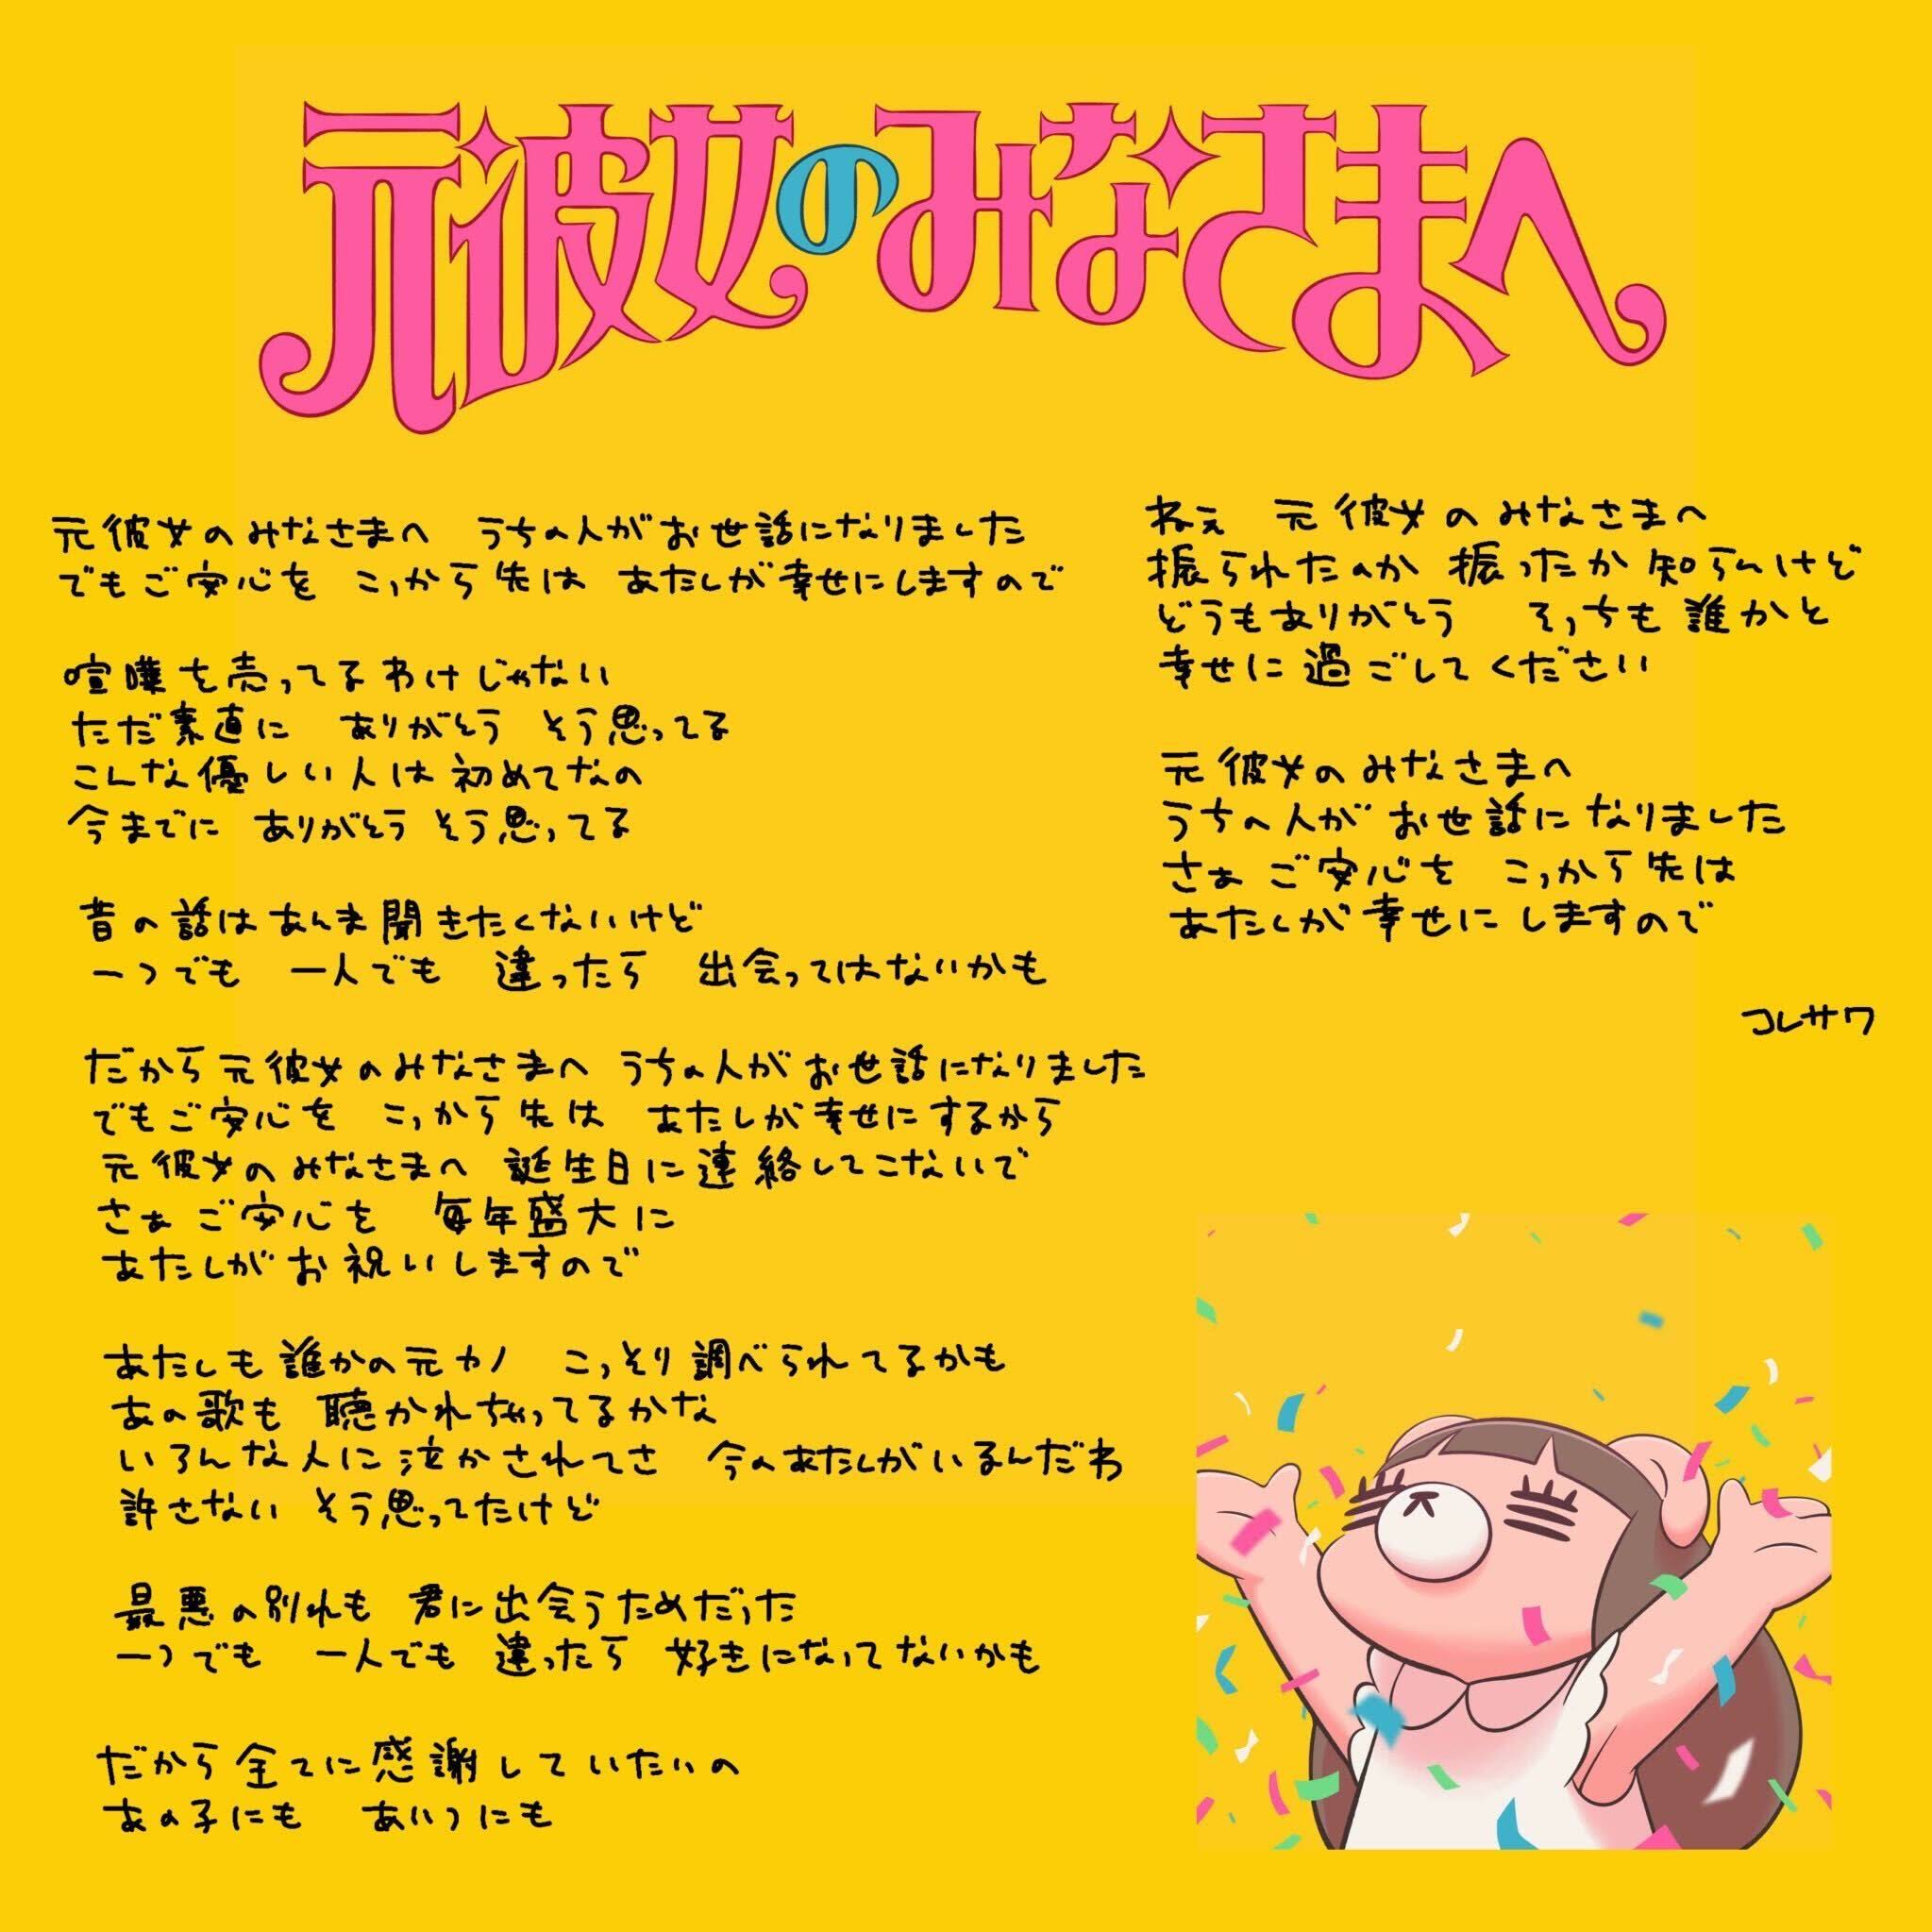 元彼女のみなさまへ
元彼女のみなさまへ うちの人がお世話になりました
でもご安心を こっから先は あたしが幸せにしますので
喧嘩を売ってるわけじゃない
ただ素直に ありがとう そう思ってる
こんな優しい人は初めてなの
今までに ありがとう そう思ってる
昔の話はあんま聞きたくないけど
一つでも 一人でも 違ったら 出会ってはないかも
だから元彼女のみなさまへ うちの人がお世話になりました
でもご安心を こっから先は あたしが幸せにするから
元彼女のみなさまへ 誕生日に連絡してこないで
さぁ ご安心を 毎年盛大に
あたしがお祝いしますので
あたしも誰かの元カノ こっそり調べられてるかも
あの歌も 聴かれちゃってるかな
いろんな人に泣かされてさ 今のあたしがいるんだわ
許さない そう思ってたけど
最悪の別れも 君に出会うためだった
一つでも 一人でも 違ったら 好きになってないかも
だから全てに感謝していたいの
あの子にも あいつにも
ねぇ 元彼女のみなさまへ
振られたのか 振ったか知らんけど
どうもありがとう そっちも誰かと
幸せに過ごしてください
元彼女のみなさまへ
うちの人がお世話になりました
さぁ ご安心を こっから先は
あたしが幸せにしますので
コレサワ